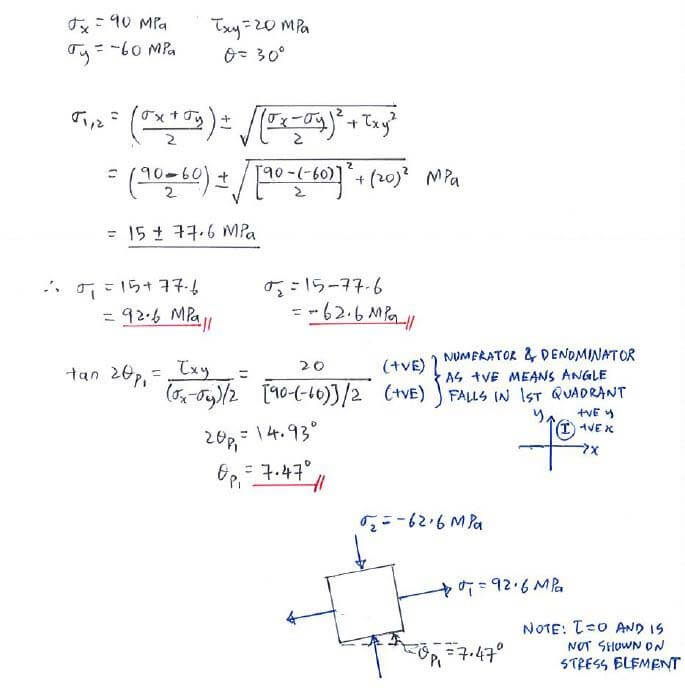 σx = 90 MPa τxy = 20 MPa
σy = -60 MPa θ = 30°
σ1,2 = ((σx + σy)/2) ± √(((σx - σy)/2)² + τxy²)
= ((90 - 60)/2) ± √([90 - (-60)]/2]² + (20)²) MPa
= 15 ± 77.6 MPa
∴ σ1 = 15 + 77.6 σ2 = 15 - 77.6
= 92.6 MPa = -62.6 MPa
tan 2θP1 = τxy/((σx - σy)/2) = 20/([90 - (-60)]/2) (+VE) (+VE)
NUMERATOR & DENOMINATOR
AS +VE MEANS ANGLE
FALLS IN 1ST QUADRANT
y +VE y
I +VE x
x
2θP1 = 14.93°
θP1 = 7.47°
σ2 = -62.6 MPa
σ1 = 92.6 MPa
θP1 = 7.47°
NOTE: τ=0 AND IS
NOT SHOWN ON
STRESS ELEMENT